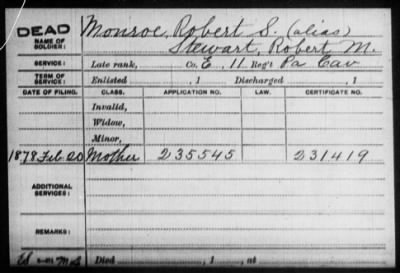 DEAD Monroe, Robert S. (alias)
NAME OF SOLDIER: Stewart, Robert M.
SERVICE: Late rank, Co. E, 11 Reg't Pa Cav
TERM OF SERVICE: Enlisted , 1 Discharged , 1
DATE OF FILING. CLASS. APPLICATION NO. LAW. CERTIFICATE NO.
Invalid,
Widow,
Minor,
1878 Feb 20 Mother 235545 231419
ADDITIONAL SERVICES:
REMARKS:
Died , 1 , at